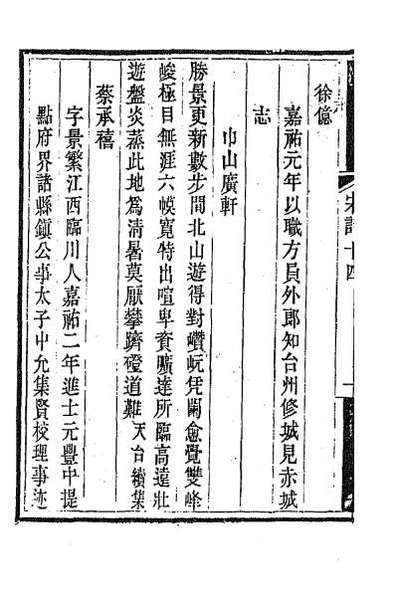 徐億
嘉祐元年以職方員外郎知台州修城見赤城
志
巾山廣軒
勝景更新數步間北山遊得對巑岏凭闌愈覺雙峰
峻極目無涯六幙寬特出喧卑資曠達所臨高遠壯
遊盤炎蒸此地爲清暑莫厭攀躋磴道難天台續集
蔡承禧
字景繁江西臨川人嘉祐二年進士元豐中提
點府界諸縣鎮公事太子中允集賢校理事迹
宋詩十四